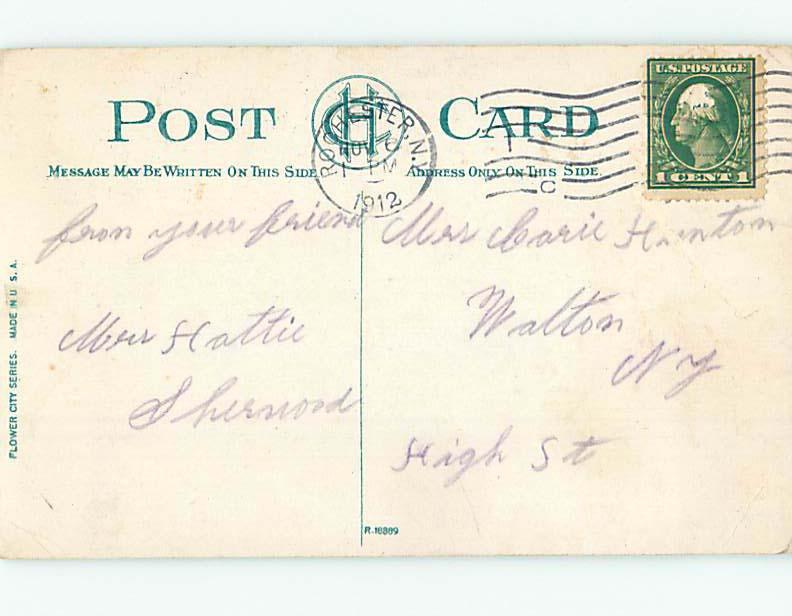 POST CARD
MESSAGE MAY BE WRITTEN ON THIS SIDE
ADDRESS ONLY ON THIS SIDE.
ROCHESTER, N.Y.
NOV 6
1 PM
1912
C
U.S. POSTAGE
1 CENT 1
from your friend
Mrs Hattie
Sherwood
Mrs Carie Hanton
Walton
NY
High St
FLOWER CITY SERIES. MADE IN U.S.A.
R-16889